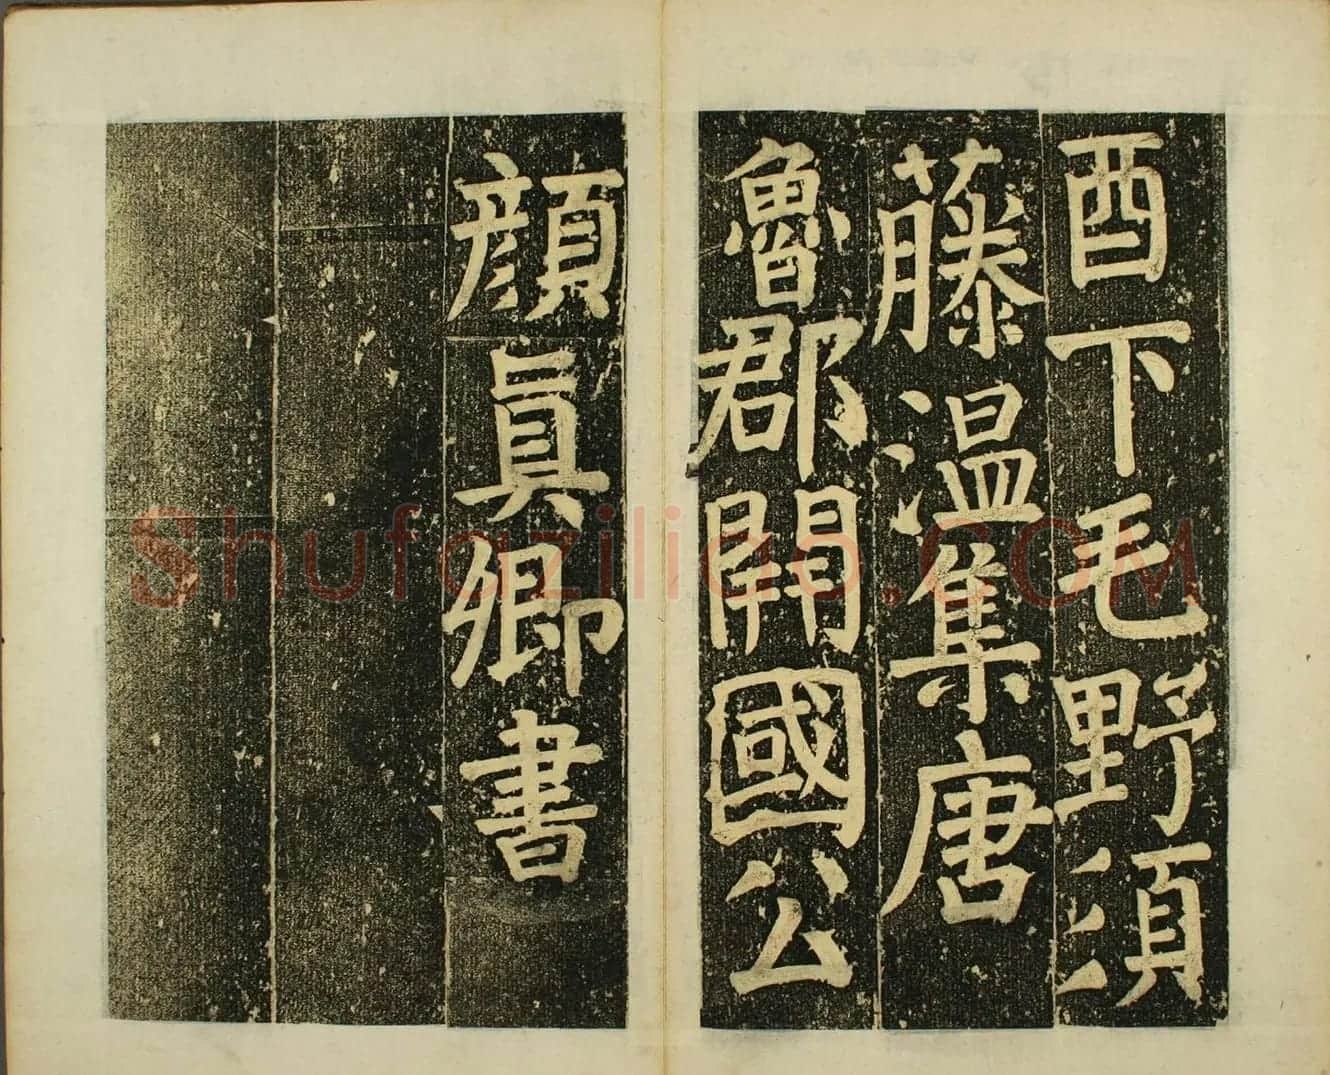 酉下毛野須
藤温集唐
魯郡開國公
顔眞卿書
Shufaziliao.COM